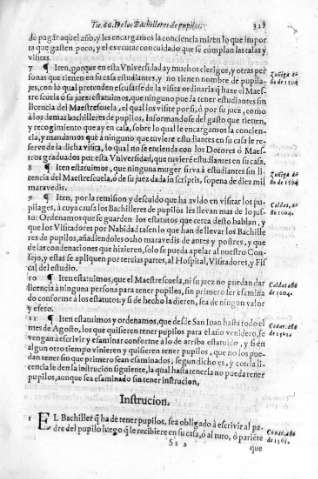 Tit. 60. De los Bachilleres de pupilos. 321
de pagar aquel año, y les encargamos la conciencia miren lo que impor
ta que gasten poco, y el executar con cuidado que se cumplan las tasas y
visitas.
7 ¶ Iten, porque en esta Vniuersidad ay muchos clerigos, y otras per
sonas que tienen en su casa estudiantes, y no tienen nombre de pupila-
jes, con lo qual pretenden escusarse de la visita ordinaria q̃ haze el Maes-
trescuela ó su juez: estatuimos, que ninguno pueda tener estudiantes sin
licencia del Maestrescuela, el qual los visite por sí, ó por su juez, como
a los demas bachilleres de pupilos, informandose del gasto que tienen,
y recogimiento que ay en casa, sobre lo qual le encargamos la concien-
cia, y mandamos que à ninguno que tuuiere estudiantes en su casa le re-
serue de la dicha visita, lo qual no se entienda con los Dotores ó Maes-
tros graduados por esta Vniuersidad, que tuuieré estudiantes en su casa.
8 ¶ Iten estatuimos, que ninguna muger sirua à estudiantes sin li-
cencia del Maestrescuela, ó de su juez dada in scriptis, sopena de diez mil
maravedis.
9 ¶ Iten, por la remision y descuido que ha auido en visitar los pu-
pilages, à cuya causa los Bachilleres de pupilos les lleuan mas de lo jus-
to: Ordenamos que se guarden los estatutos que cerca desto hablan, y
que los Visitadores por Nabidad tasen lo que han de lleuar los Bachille
res de pupilos, añadiendoles ocho marauedis de antes y postres, y que
de las condenaciones que hizieren, solo se pueda apelar al nuestro Con-
sejo, y estas se apliquen por tercias partes, al Hospital, Visitadores, y Fis
cal del estudio.
10 ¶ Iten estatuimos, que el Maestrescuela, ni su juez no puedan dar
licencia à ninguna persona para tener pupilos, sin primero ser examina
do conforme a los estatutos, y si de hecho la dieren, sea de ningun valor
y efeto.
11 ¶ Iten estatuimos y ordenamos, que desde San Iuan hasta todo el
mes de Agosto, los que quisieren tener pupilos para el año venidero, se
vengan à escriuir y examinar conforme à lo de arriba establecido, y si en
algun otro tiempo vinieren y quisieren tener pupilos, que no los pue-
dan tener sin que primero sean examinados, segun dicho es, y con la li-
cencia le den la instrucion siguiente, la qual hasta tenerla no pueda tener
pupilos, aunque sea examinado sin tener instrucion.
Instrucion.
1 EL Bachiller q̃ ha de tener pupilos, sea obligado à escriuir al pa-
dre del pupilo luego q̃ le recibiere en su casa, ó al tutor, ó pariéte
Ss 2 que